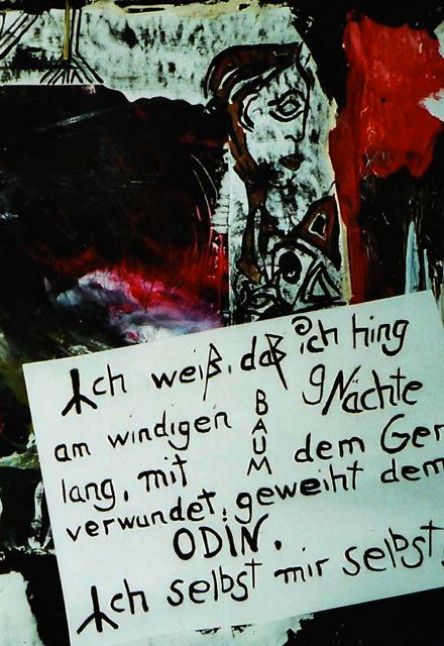 Ich weiß, daß ich hing
am windigen BAUM 9 Nächte
lang, mit dem Ger
verwundet, geweiht dem
ODIN.
Ich selbst mir selbst.